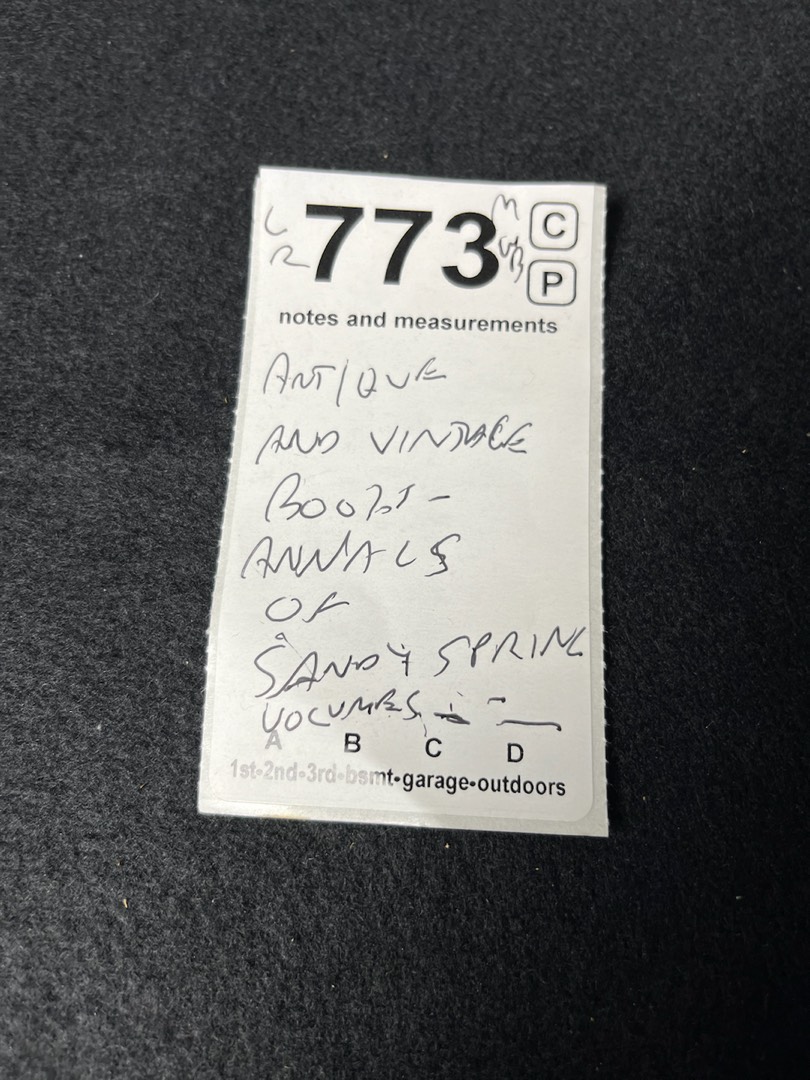 L 773 M C
R P
notes and measurements
ANTIQUE
AND VINTAGE
BOOKS-
ANNALS
OF
SANDY SPRING
VOLUMES
A B C D
1st•2nd•3rd•bsmt•garage•outdoors